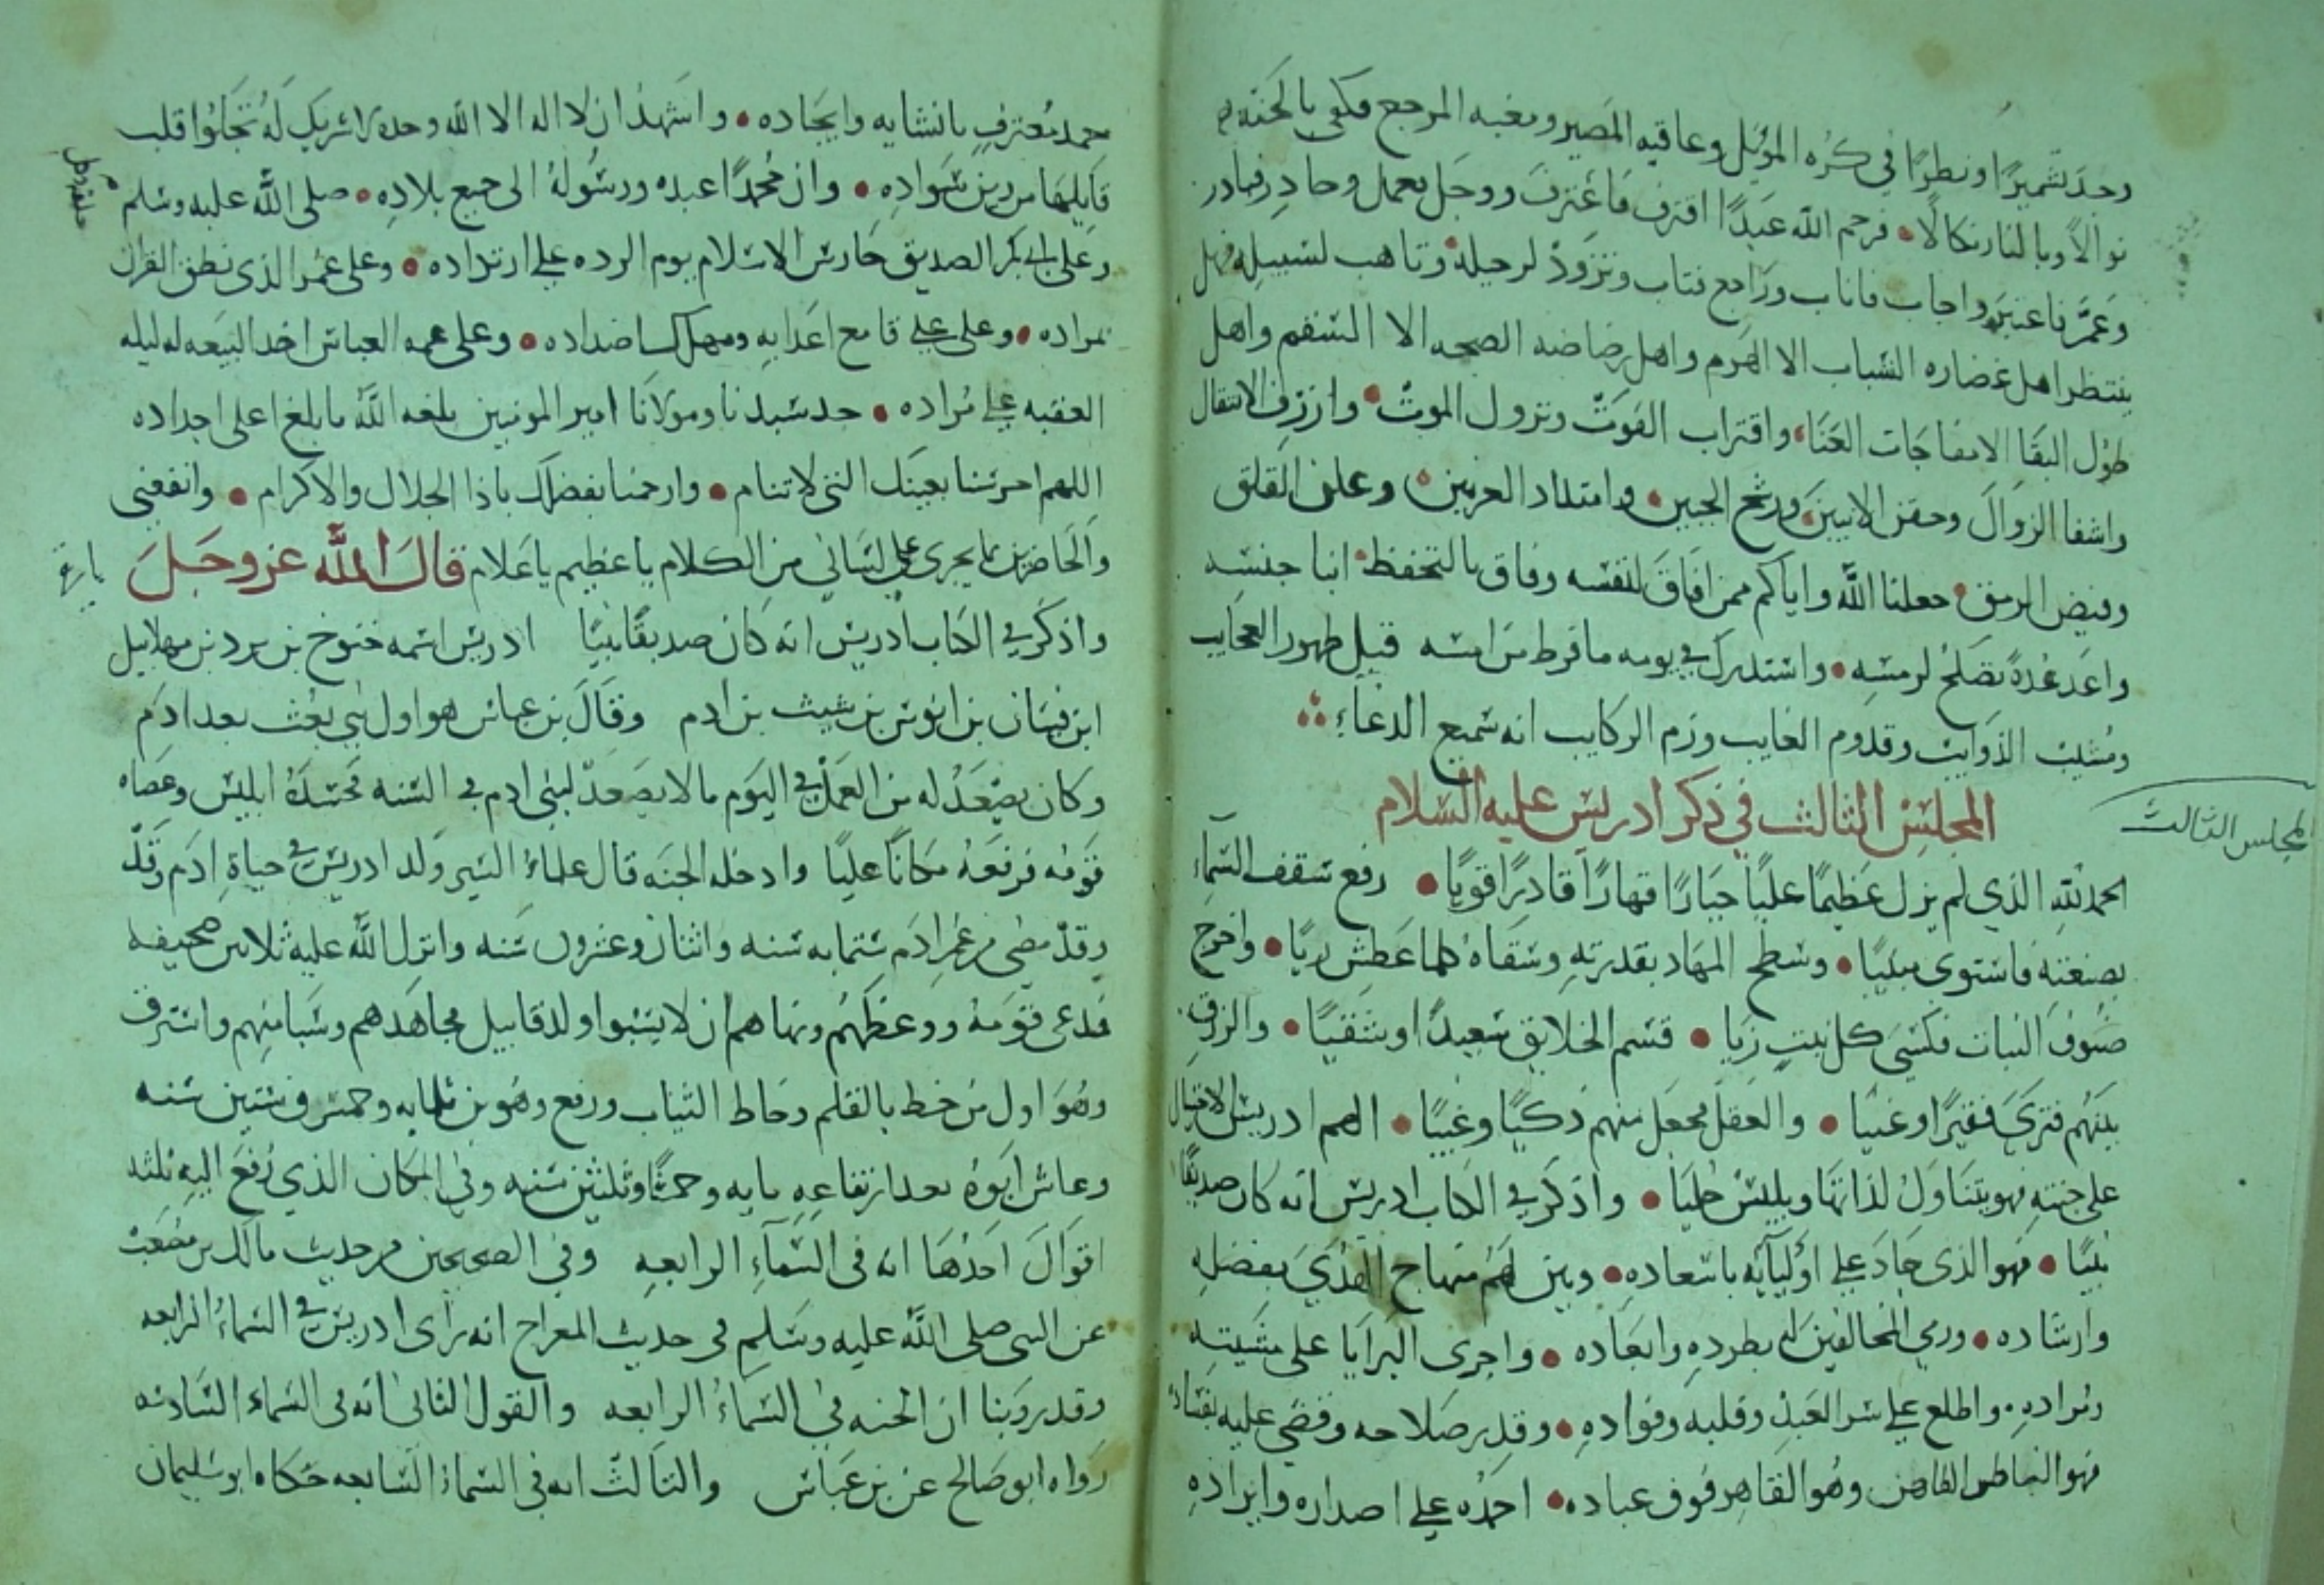 وجد تشميرًا ونظرًا في كره الموئل وعاقبه المصير ومغبه المرجع فكفى بالجنه
نوالًا وبالنار نكالًا • فرحم الله عبدًا اقترف فاعترف ووجل فعمل وحاذر فبادر
وعمّر فاعتبر واجاب فاناب وراجع فتاب وتزود لرحيله وتاهب لسبيله فهل
ينتظر اهل غضاره الشباب الا الهرم واهل بضاضه الصحه الا السقم واهل
طول البقا الا مفاجات الفنا واقتراب الفوت ونزول الموت • وازف الانتقال
واشفا الزوال وحفز الانين ورشح الجبين • وامتداد العرنين وعلز القلق
وفيض الرمق • جعلنا الله واياكم ممن افاق لنفسه وفاق بالتحفظ ابنا جنسه
واعد عدة تصلح لرمسه • واستدرك في يومه ما فرط من امسه قبل ظهور العجايب
ومشيب الذوايب وقدوم الغايب وزم الركايب انه سميع الدعاء
المجلس الثالث في ذكر ادريس عليه السلام
المجلس الثالث
الحمد لله الذي لم يزل عظيمًا عليًا جبارًا قهارًا قادرًا قويًا • رفع سقف السماء
بصنعته فاستوى مبنيًا • وسطح المهاد بقدرته وسقاه كلما عطش ريًا • واخرج
صنوف النبات فكسى كل نبت زيا • قسم الخلايق سعيدًا وشقيًا • والرزق
بينهم فترى فقيرًا وغنيا • والعقل فجعل منهم ذكيًا وغبيًا • الهم ادريس الاحتيال
على جنته فهو يتناول لذاتها ويلبس حليا • واذكر في الكتاب ادريس انه كان صديقًا
نبيًا • فهو الذي جاد على اوليآئه باسعاده • وبين لهم منهاج الهدى بفضله
وارشاده • ورمي المخالفين له بطرده وابعاده • واجرى البرايا على مشيته
ومراده • واطلع على سر العبد وقلبه وفواده • وقدر صلاحه وقضى عليه بفساده
فهو الباطن الظاهر وهو القاهر فوق عباده • احمده على اصداره وايراده
حمد معترف بانشايه وايجاده • واشهد ان لا اله الا الله وحده لا شريك له شهادة يجلوا قلب
قايلها من رين سواده • وان محمدًا عبده ورسوله الى جميع بلاده • صلى الله عليه وسلم
وعلى ابي بكر الصديق حارس الاسلام يوم الرده على ارتداده • وعلى عمر الذي نطق القران
بمراده • وعلى علي قامع اعدايه ومهلك اضداده • وعلى عمه العباس اخذ البيعه له ليله
العقبه على مراده • جد سيدنا ومولانا امير المومنين بلغه الله ما بلغ اعلى اجداده
اللهم احرسنا بعينك التي لا تنام • وارحمنا بفضلك يا ذا الجلال والاكرام • وانفعني
والحاضرين بما يجري على لساني من الكلام يا عظيم يا علام قال الله عز وجل
واذكر في الكتاب ادريس انه كان صديقًا نبيًا ادريس اسمه خنوخ بن يرد بن مهلايل
ابن قينان بن انوش بن شيث بن ادم وقال بن عباس هو اول نبي بعث بعد ادم
وكان يصعد له من العمل في اليوم ما لا يصعد لبني ادم في السنه فحسده ابليس وعصاه
قومه فرفعه مكانًا عليًا وادخله الجنه قال علماء السير ولد ادريس في حياة ادم وقد
وقد مضى من عمر ادم ستمايه سنه واثنان وعشرون سنه وانزل الله عليه ثلاثين صحيفه
فدعى قومه ووعظهم ونهاهم ان لا يتبعوا ولد قابيل فجاهدهم وسبا منهم واسترق
وهو اول من خط بالقلم وخاط الثياب ورفع وهو بن ثلثمايه وخمس وستين سنه
وعاش ابوه بعد ارتفاعه مايه وخمسًا وثلثين سنه وفي المكان الذي رفع اليه ثلثه
اقوال احدها انه في السمآء الرابعه وفي الصحيحين من حديث مالك بن صعصعة
عن النبي صلى الله عليه وسلم في حديث المعراج انه راى ادريس في السماء الرابعه
وقد روينا ان الجنه في السماء الرابعه والقول الثاني انه في السماء السادسه
رواه ابو صالح عن بن عباس والثالث انه في السماء السابعه حكاه ابو سليمان